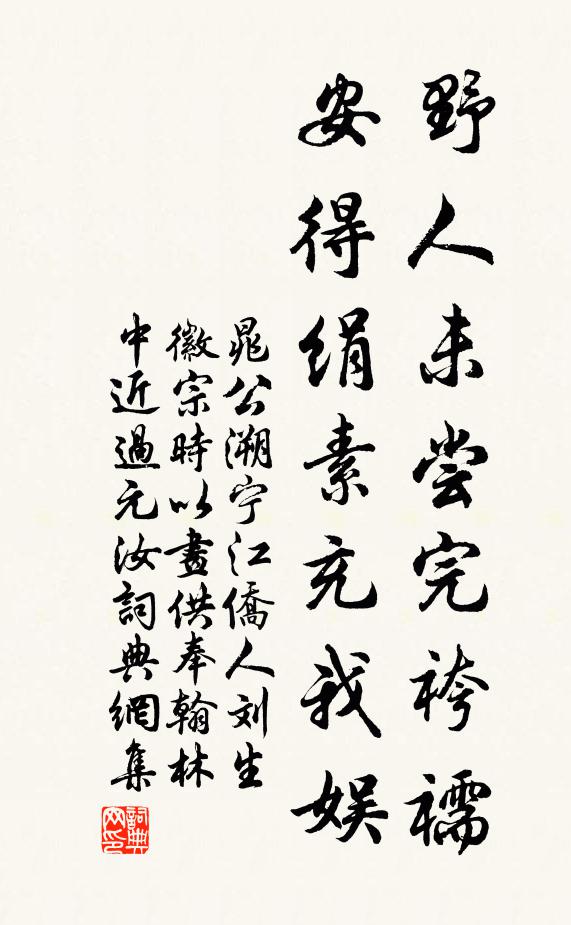 野人未尝完袴襦
安得绢素充我娱
晁公溯宁江僑人刘生
徽宗時以畫供奉翰林
中近過元汝詞典網集
詞典网印